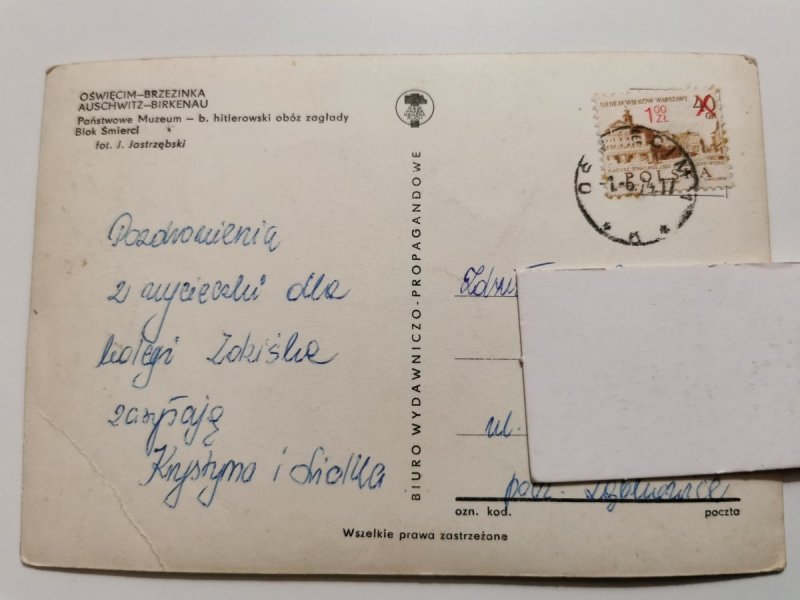 OŚWIĘCIM–BRZEZINKA
AUSCHWITZ–BIRKENAU
Państwowe Muzeum — b. hitlerowski obóz zagłady
Blok Śmierci
fot. J. Jastrzębski
Pozdrowienia
z wycieczki dla
kolegi Zdziśka
zasyłają
Krystyna i
BIURO WYDAWNICZO-PROPAGANDOWE
SIEDEM WIEKÓW WARSZAWY
1,00 ZŁ
40 GR
POLSKA
ul.
pow.
ozn. kod.
poczta
Wszelkie prawa zastrzeżone